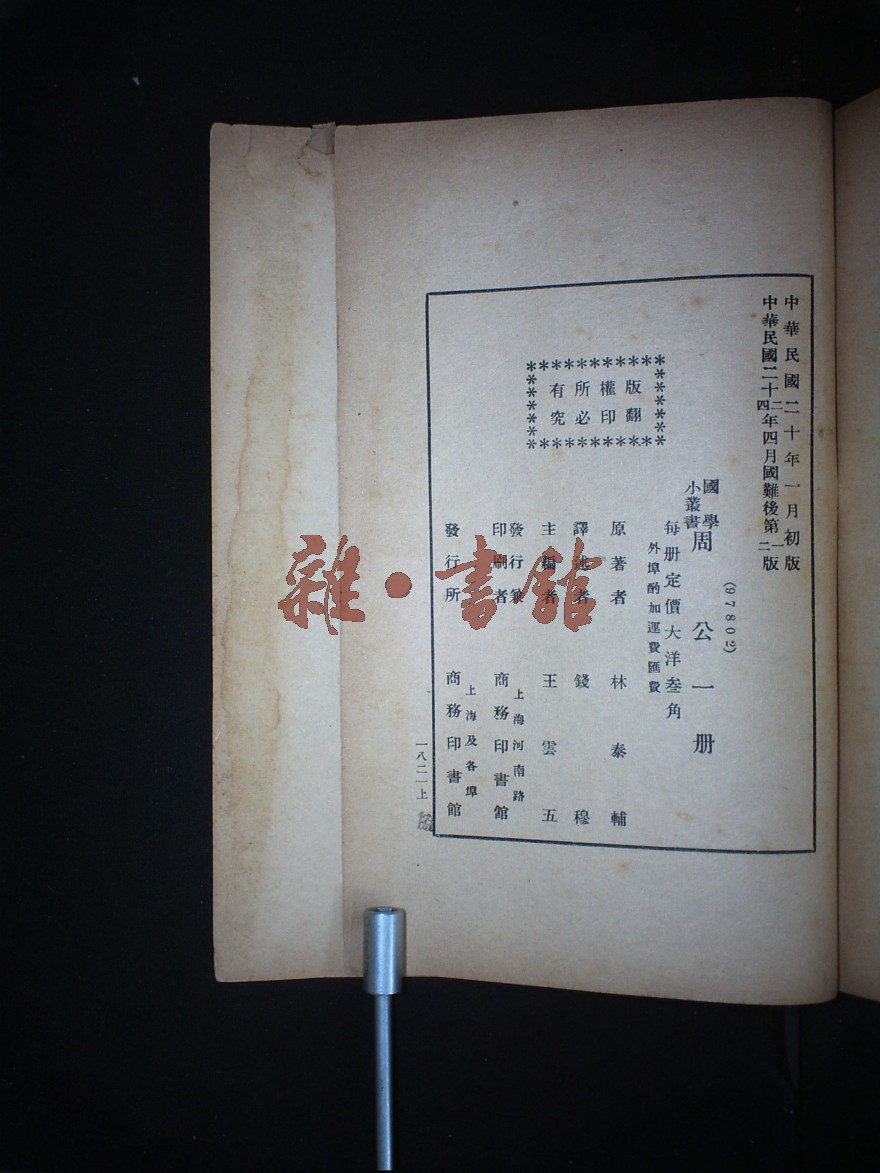 中華民國二十年一月初版
中華民國二十二年四月國難後第一版
四 二
(97802)
國學
小叢書
周公一册
每册定價大洋叁角
外埠酌加運費匯費
版權所有
翻印必究
原著者 林泰輔
譯述者 錢穆
主編者 王雲五
發行兼
印刷者
上海河南路
商務印書館
發行所
上海及各埠
商務印書館
一八二一上
雜·書館